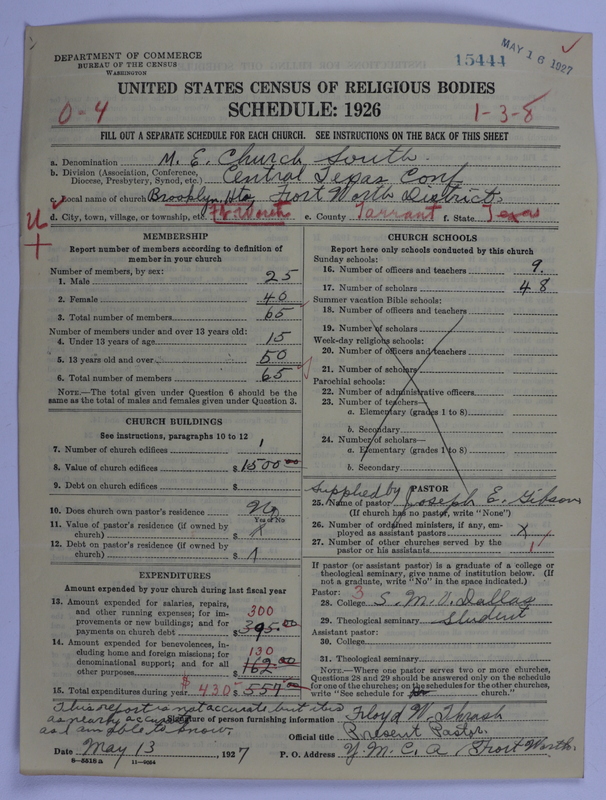 DEPARTMENT OF COMMERCE
BUREAU OF THE CENSUS
WASHINGTON
15444
MAY 16 1927
UNITED STATES CENSUS OF RELIGIOUS BODIES
SCHEDULE: 1926
0-4
1-3-8
FILL OUT A SEPARATE SCHEDULE FOR EACH CHURCH. SEE INSTRUCTIONS ON THE BACK OF THIS SHEET
a. Denomination M. E. Church South.
b. Division (Association, Conference, Diocese, Presbytery, Synod, etc.) Central Texas Conf
c. Local name of church Brooklyn Hts Fort Worth District
d. City, town, village, or township, etc. Ft Worth e. County Tarrant f. State Texas
MEMBERSHIP
Report number of members according to definition of
member in your church
Number of members, by sex:
1. Male 25
2. Female 40
3. Total number of members 65
Number of members under and over 13 years old:
4. Under 13 years of age 15
5. 13 years old and over 50
6. Total number of members 65
NOTE.—The total given under Question 6 should be the
same as the total of males and females given under Question 3.
CHURCH BUILDINGS
See instructions, paragraphs 10 to 12
7. Number of church edifices 1
8. Value of church edifices $1500.00
9. Debt on church edifices $
10. Does church own pastor's residence No
Yes or No
11. Value of pastor's residence (if owned by
church) $
12. Debt on pastor's residence (if owned by
church) $
EXPENDITURES
Amount expended by your church during last fiscal year
13. Amount expended for salaries, repairs,
and other running expenses; for im- 300
provements or new buildings; and for
payments on church debt $395.00
14. Amount expended for benevolences, in-
cluding home and foreign missions; for 130
denominational support; and for all
other purposes 162.00
15. Total expenditures during year $430 $557.00
CHURCH SCHOOLS
Report here only schools conducted by this church
Sunday schools:
16. Number of officers and teachers 9.
17. Number of scholars 48
Summer vacation Bible schools:
18. Number of officers and teachers
19. Number of scholars
Week-day religious schools:
20. Number of officers and teachers
21. Number of scholars
Parochial schools:
22. Number of administrative officers
23. Number of teachers—
a. Elementary (grades 1 to 8)
b. Secondary
24. Number of scholars—
a. Elementary (grades 1 to 8)
b. Secondary
PASTOR
Supplied by
25. Name of pastor Joseph E. Gibson
(If church has no pastor, write "None")
26. Number of ordained ministers, if any, em-
ployed as assistant pastors X
27. Number of other churches served by the
pastor or his assistants 1
If pastor (or assistant pastor) is a graduate of a college or
theological seminary, give name of institution below. (If
not a graduate, write "No" in the space indicated.)
Pastor: 3
28. College S. M. U. Dallas
29. Theological seminary Student
Assistant pastor:
30. College
31. Theological seminary
NOTE.—Where one pastor serves two or more churches,
Questions 28 and 29 should be answered only on the schedule
for one of the churches; on the schedules for the other churches,
write "See schedule for church."
This report is not accurate but it is
as nearly accurate
as I am able to know.
Signature of person furnishing information Floyd W. Thrash
Official title Present Pastor.
Date May 13, 1927
P. O. Address Y. M. C. A. Fort Worth.
8-5518 a 11-9034